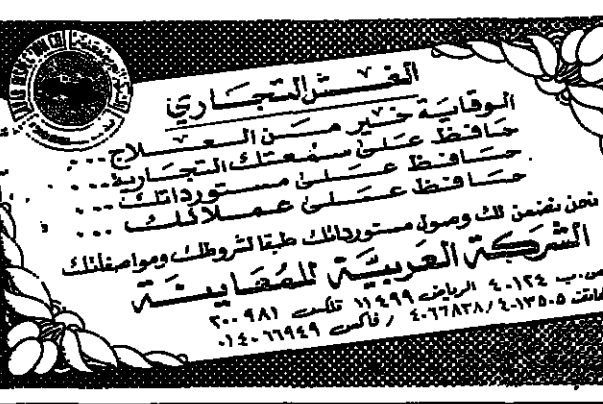 الغش التجاري
الوقاية خير من العلاج...
حافظ على سمعتك التجارية...
حافظ على مستورداتك...
حافظ على عملائك...
نحن نضمن لك وصول مستورداتك طبقا لشروطك ومواصفاتك
الشركة العربية للمعاينة
ص.ب ٤٠١٢٤ الرياض ١١٤٩٩ تلكس ٢٠٠٩٨١
هاتف ٤٠١٣٥٠٥ / ٤٠٦٧٨٣٨ / فاكس ٠١٤٠٦٦٩٤٩